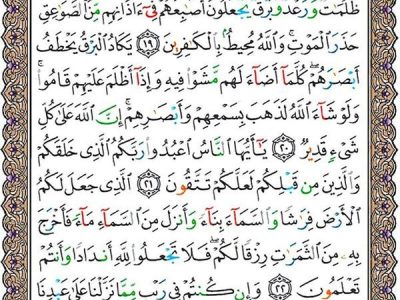 ظُلُمَٰتٌ وَرَعْدٌ وَبَرْقٌ يَجْعَلُونَ أَصَٰبِعَهُمْ فِىٓ ءَاذَانِهِم مِّنَ ٱلصَّوَٰعِقِ
حَذَرَ ٱلْمَوْتِ ۚ وَٱللَّهُ مُحِيطٌۢ بِٱلْكَٰفِرِينَ ١٩ يَكَادُ ٱلْبَرْقُ يَخْطَفُ
أَبْصَٰرَهُمْ ۖ كُلَّمَآ أَضَآءَ لَهُم مَّشَوْا۟ فِيهِ وَإِذَآ أَظْلَمَ عَلَيْهِمْ قَامُوا۟ ۚ
وَلَوْ شَآءَ ٱللَّهُ لَذَهَبَ بِسَمْعِهِمْ وَأَبْصَٰرِهِمْ ۚ إِنَّ ٱللَّهَ عَلَىٰ كُلِّ
شَىْءٍ قَدِيرٌ ٢٠ يَٰٓأَيُّهَا ٱلنَّاسُ ٱعْبُدُوا۟ رَبَّكُمُ ٱلَّذِى خَلَقَكُمْ
وَٱلَّذِينَ مِن قَبْلِكُمْ لَعَلَّكُمْ تَتَّقُونَ ٢١ ٱلَّذِى جَعَلَ لَكُمُ
ٱلْأَرْضَ فِرَٰشًا وَٱلسَّمَآءَ بِنَآءً وَأَنزَلَ مِنَ ٱلسَّمَآءِ مَآءً فَأَخْرَجَ
بِهِۦ مِنَ ٱلثَّمَرَٰتِ رِزْقًا لَّكُمْ ۖ فَلَا تَجْعَلُوا۟ لِلَّهِ أَندَادًا وَأَنتُمْ
تَعْلَمُونَ ٢٢ وَإِن كُنتُمْ فِى رَيْبٍ مِّمَّا نَزَّلْنَا عَلَىٰ عَبْدِنَا